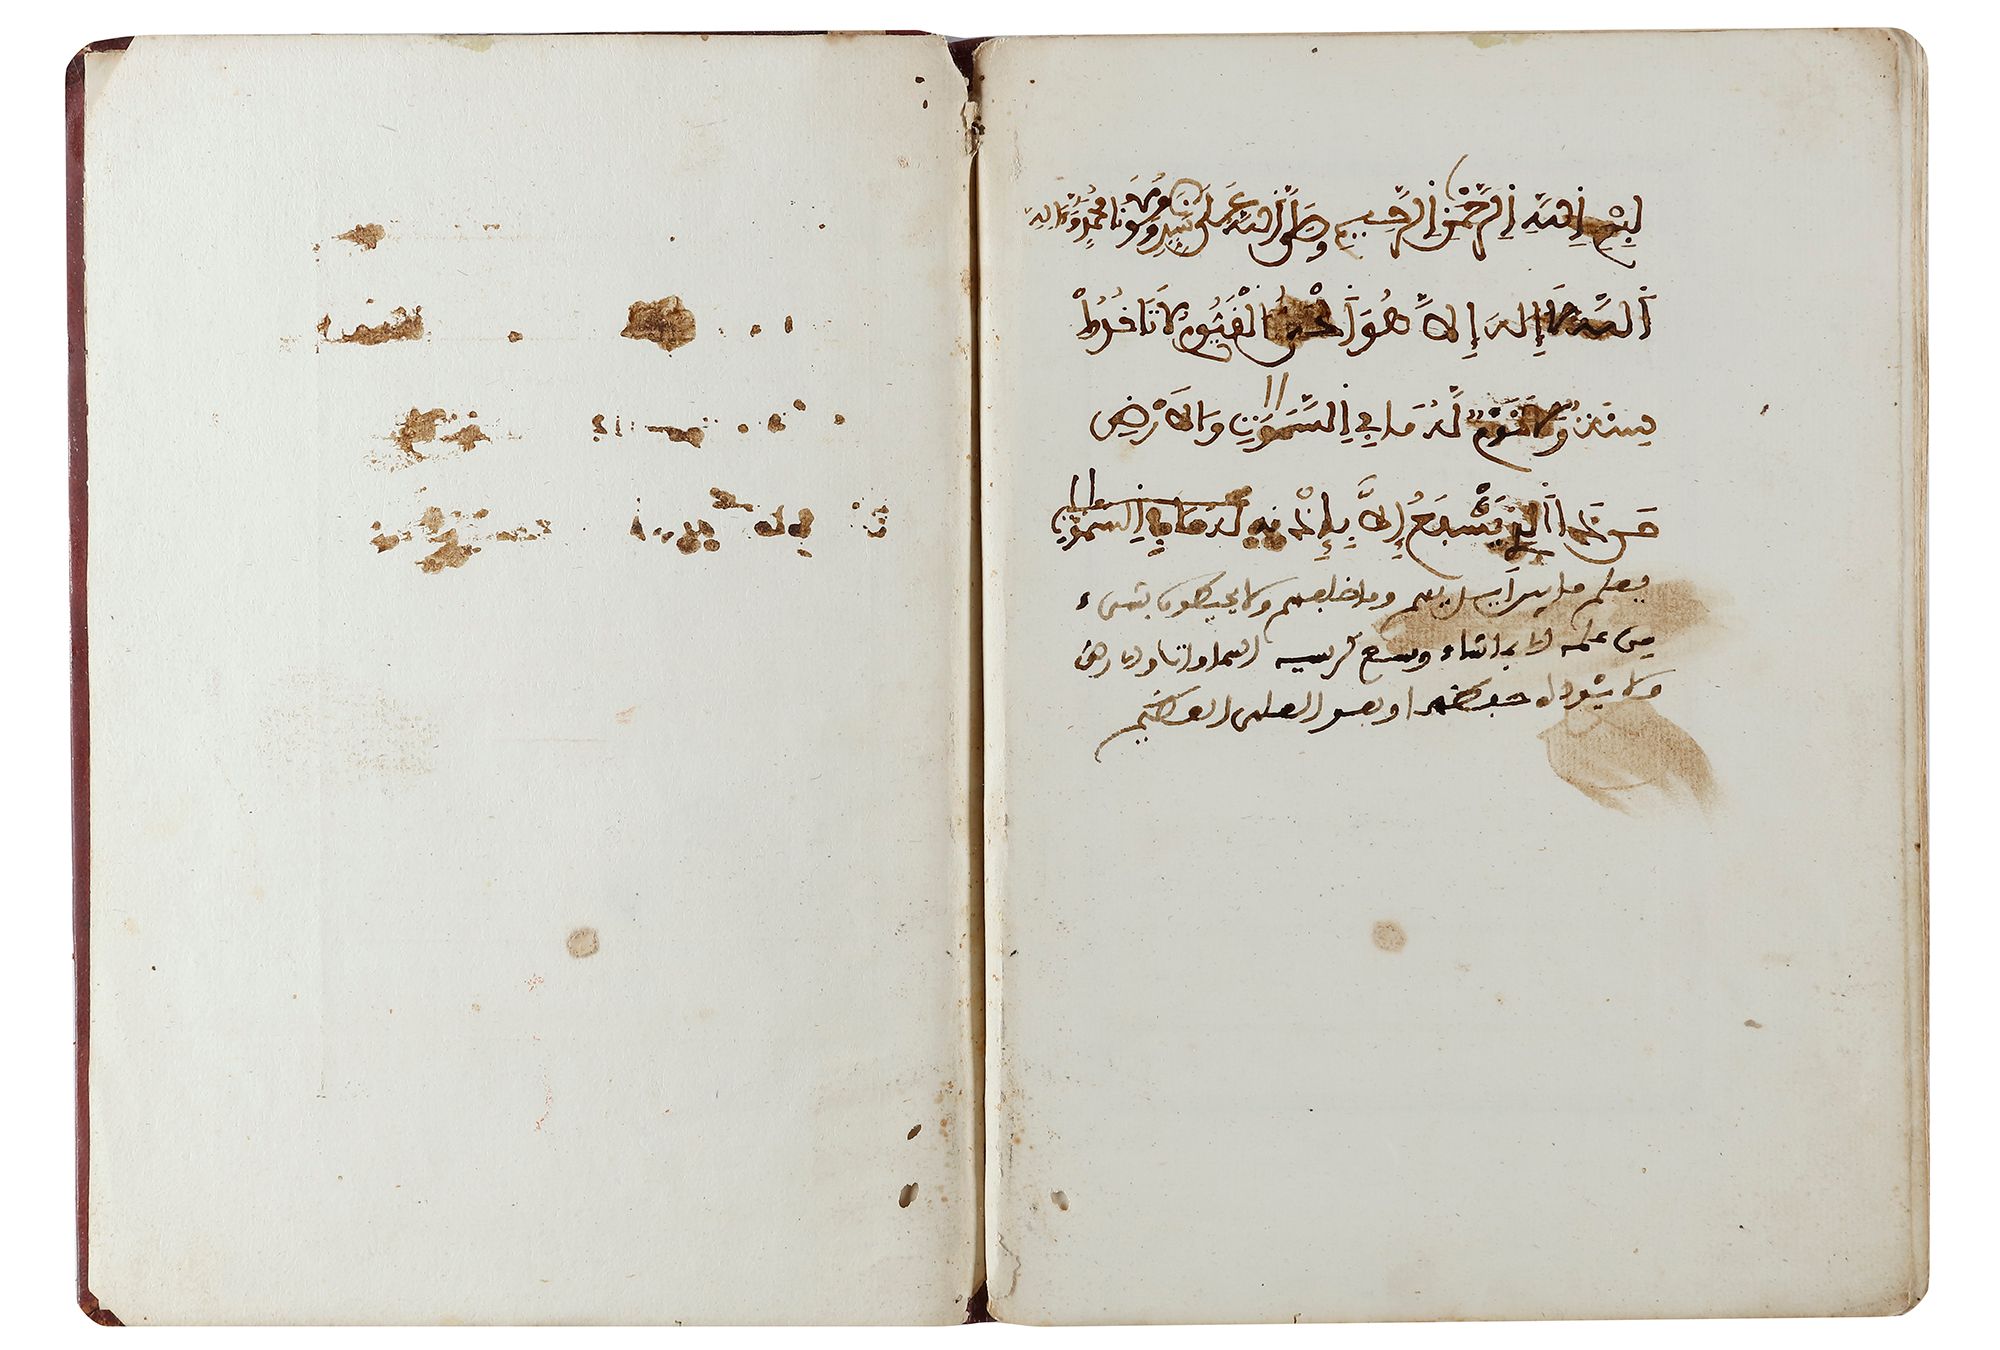 بِسْمِ اِللَّهِ اِلرَّحْمَنِ اِلرَّحِيمِ وصَلَّى اَللَّهُ عَلَى سَيِّدِنَا ومَوْلانَا مُحَمَّدٍ وَءَالِهِ
اَللَّهُ لَا إِلَهَ إِلاَّ هُوَ اَلْحَيُّ اُلْقَيُّومُ لَا تَاخُذُهُ
سِنَةٌ وَلَا نَوْمٌ لَّهُ مَا فِي اِلسَّمَوَتِ وَالَارْضِ
مَن ذَا اَلذِي يَشْفَعُ إِلاَّ بِإِذْنِهِ لَهُ مَا فِي اِلسَّمَوَتِ
يعلم ما بين أيديهم وما خلفهم ولا يحيطون بشيء
من علمه الا بما شاء وسع كرسيه السماوات والارض
ولا يئوده حفظهما وهو العلي العظيم